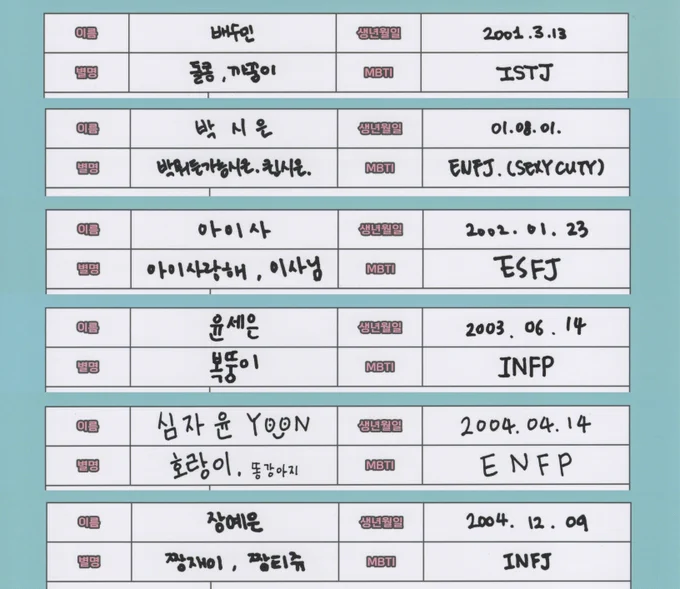 이름 배수민 생년월일 2001.3.13
별명 돌콩, 까꿍이 MBTI ISTJ
이름 박시은 생년월일 01.08.01.
별명 박뭐든가능시은.퀸시은. MBTI ENFJ.(SEXY CUTY)
이름 아이사 생년월일 2002.01.23
별명 아이사랑해, 이사님 MBTI ESFJ
이름 윤세은 생년월일 2003.06.14
별명 복뚱이 MBTI INFP
이름 심자윤 YOON 생년월일 2004.04.14
별명 호랑이, 똥강아지 MBTI ENFP
이름 장예은 생년월일 2004.12.09
별명 짱재이, 짱티쥬 MBTI INFJ